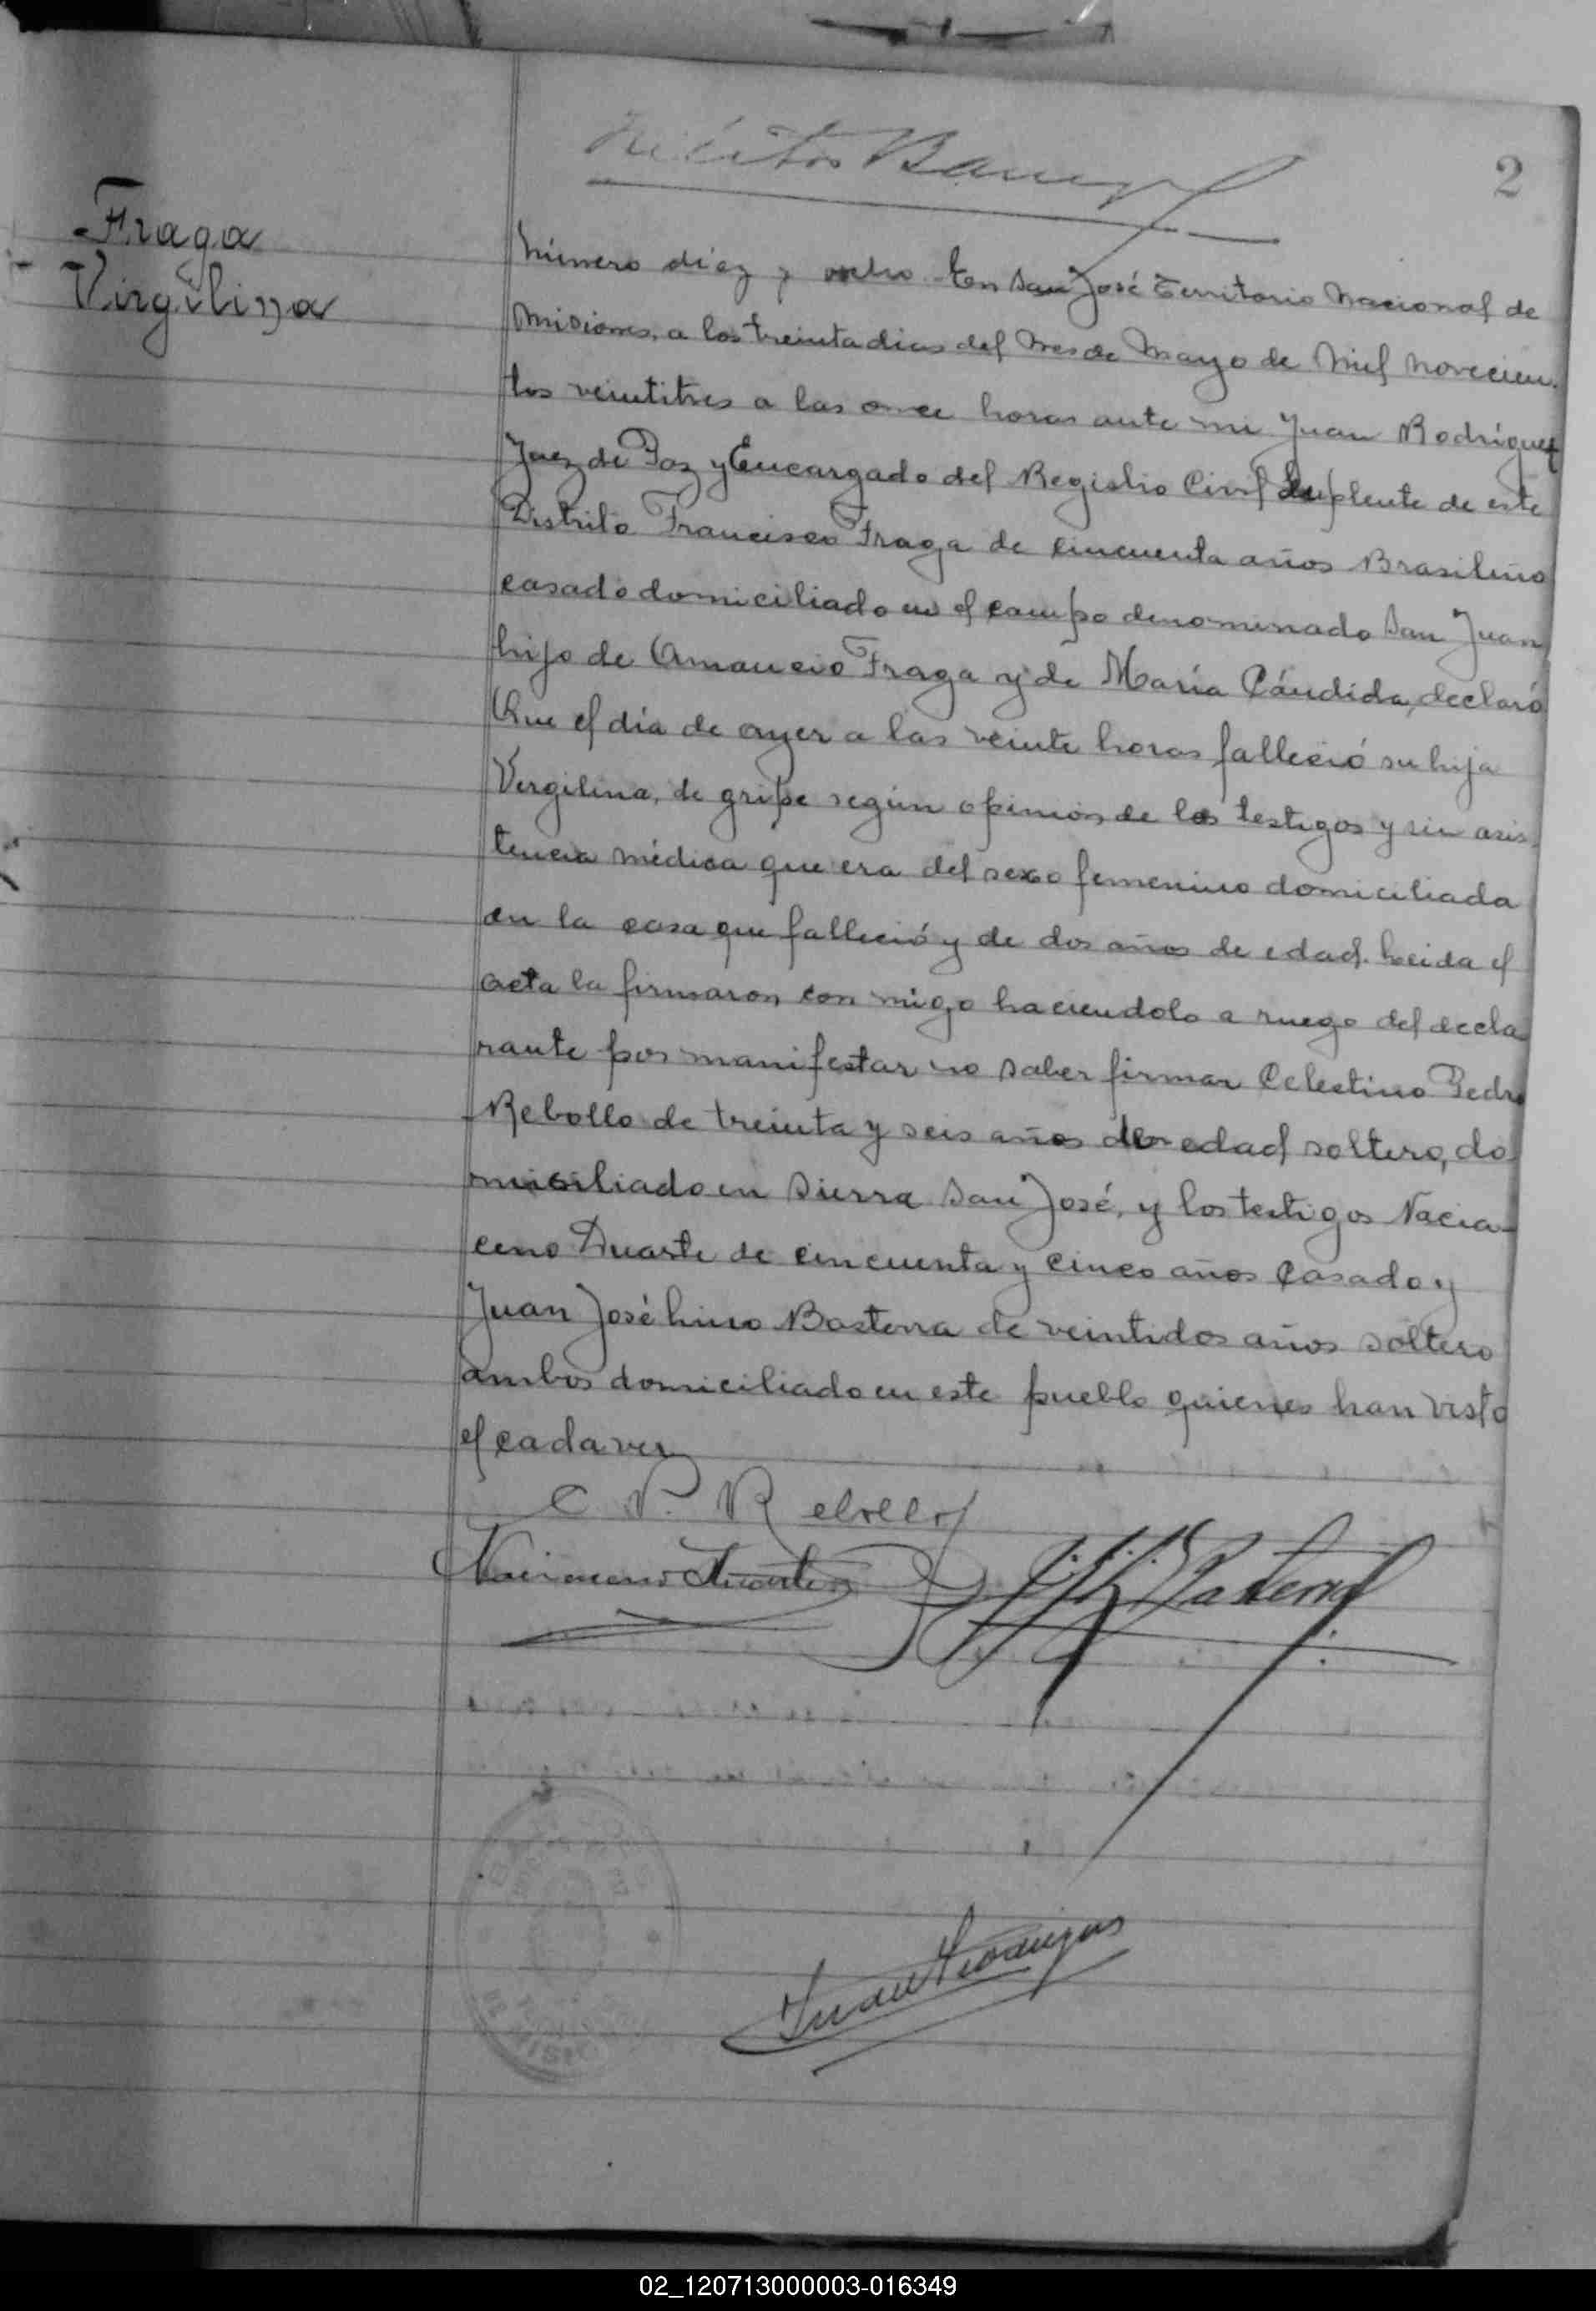 2
Fraga
Virgilina
Número diez y ocho. En San José Territorio Nacional de
Misiones, a los treinta dias del Mes de Mayo de Mil Novecien-
tos veintitres a las once horas ante mi Juan Rodríguez
Juez de Paz y Encargado del Registro Civil Suplente de este
Distrito Francisco Fraga de cincuenta años Brasileño
casado domiciliado en el campo denominado San Juan
hijo de Amancio Fraga y de María Cándida, declaró
Que el día de ayer a las veinte horas falleció su hija
Vergilina, de gripe según opinión de los testigos y sin asis-
tencia médica que era del sexo femenino domiciliada
en la casa que falleció y de dos años de edad. Leida el
acta la firmaron con migo haciendolo a ruego del decla
rante por manifestar no saber firmar Celestino Pedro
Rebollo de treinta y seis años de edad soltero, do-
misiliado en Sierra San José, y los testigos Nacia-
ceno Duarte de cincuenta y cinco años Casado y
Juan José Lino Basterra de veintidos años soltero
ambos domiciliado en este pueblo quienes han visto
el cadaver
C P. Rebollo
02_120713000003-016349